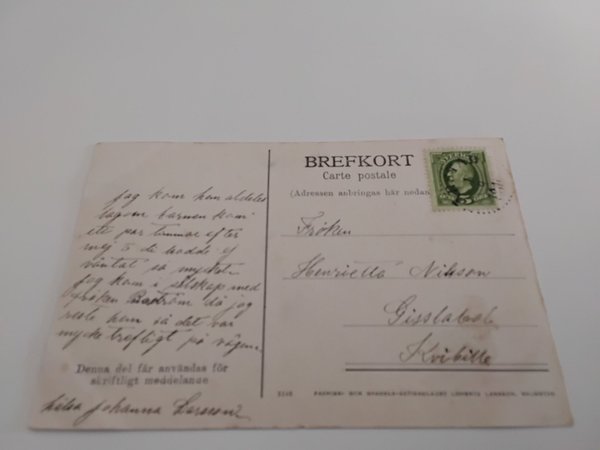 BREFKORT
Carte postale
(Adressen anbringas här nedan
SVERIGE
5
Jag kom hem aldeles
lagom barnen kom
ett par timmar efter
mej 5 de hade ej
väntat så mycket
Jag kom i selskap med
fröken då jag
reste hem så det var
mycke trefligt på vägen
Denna del får användas för
skriftligt meddelande
hälsa Johanna Larsson
Fröken
Henrietta Nilsson
Kvibille